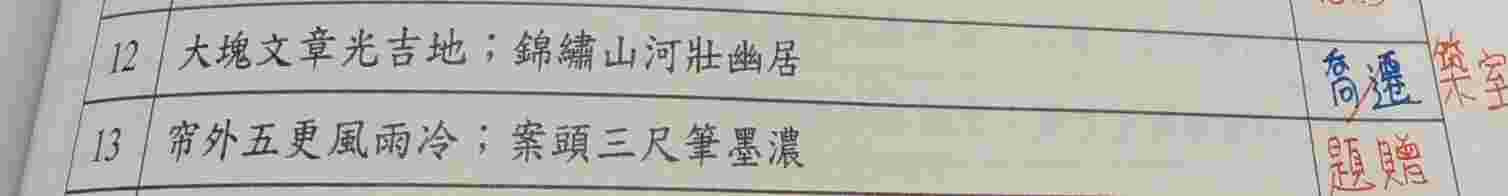 12 大塊文章光吉地；錦繡山河壯幽居 喬遷 築室
13 帘外五更風雨冷；案頭三尺筆墨濃 題贈